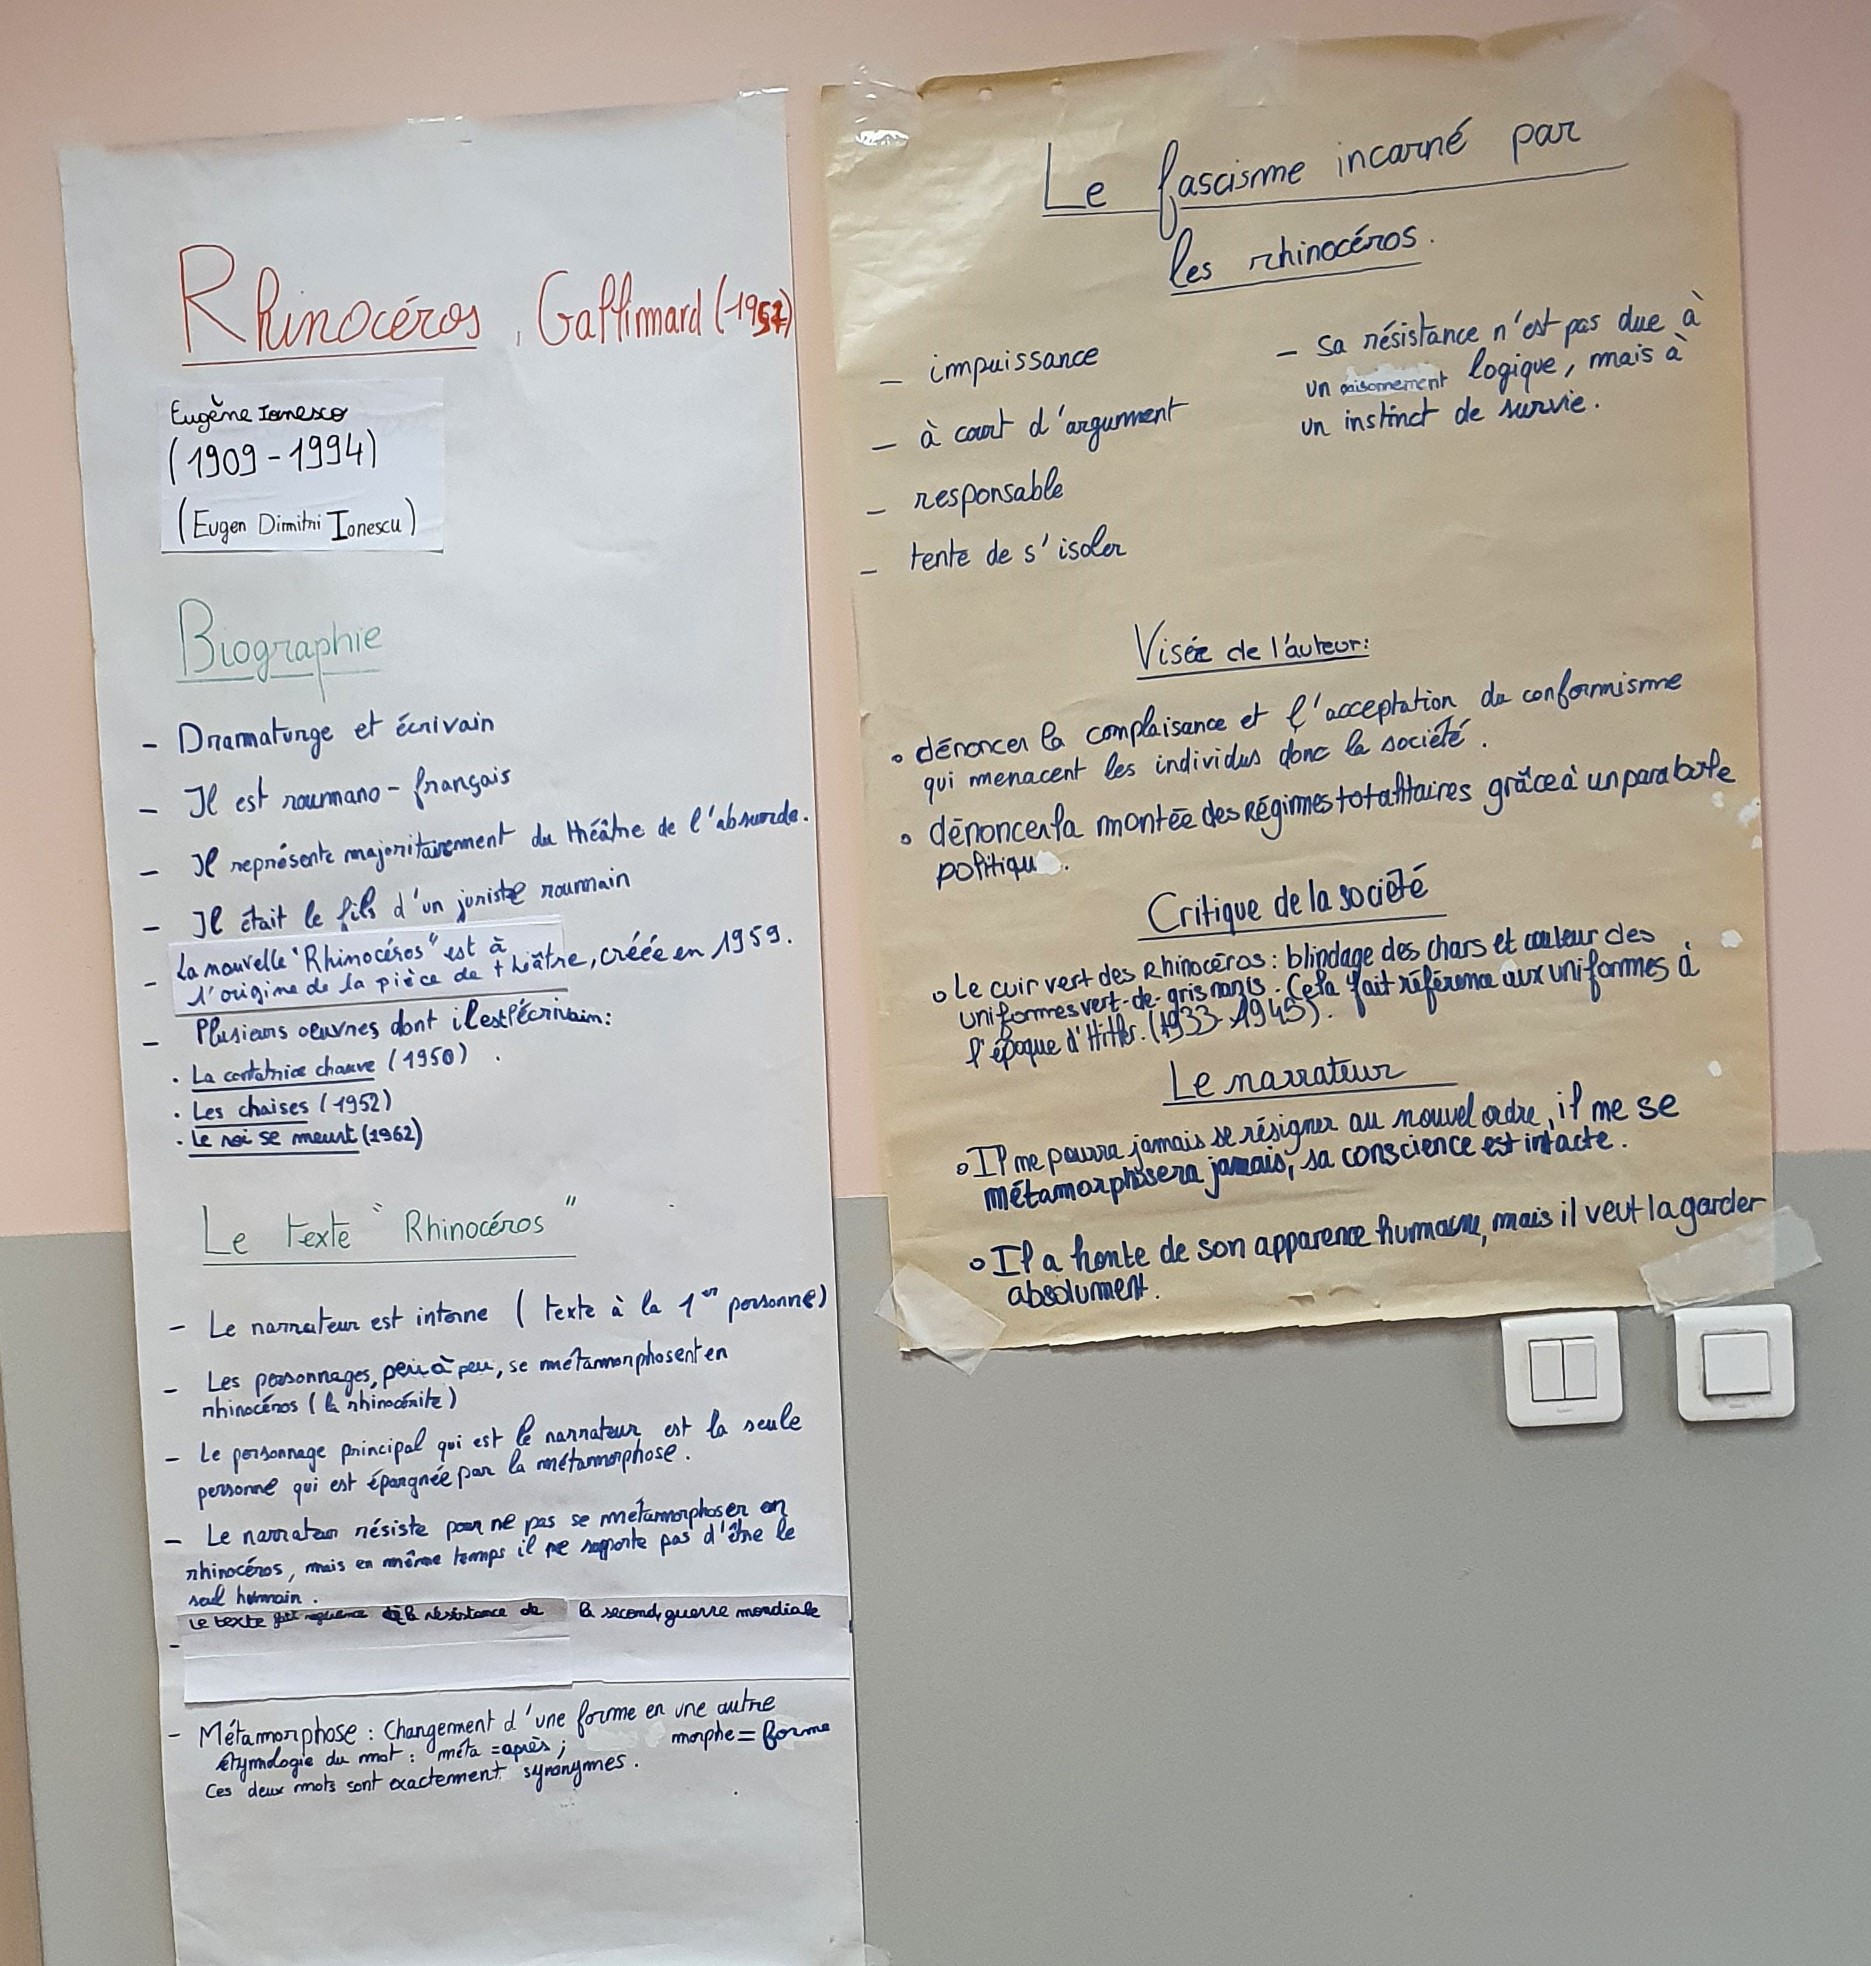 Rhinocéros, Gallimard (1957)
Eugène Ionesco
(1909-1994)
(Eugen Dimitri Ionescu)
Biographie
- Dramaturge et écrivain
- Il est roumano-français
- Il représente majoritairement du théâtre de l'absurde.
- Il était le fils d'un juriste roumain
- La nouvelle "Rhinocéros" est à
l'origine de la pièce de théâtre, créée en 1959.
- Plusieurs oeuvres dont il est l'écrivain:
. La cantatrice chauve (1950).
. Les chaises (1952)
. Le roi se meurt (1962)
Le texte "Rhinocéros"
- Le narrateur est interne (texte à la 1er personne)
- Les personnages, peu à peu, se métamorphosent en
rhinocéros (la rhinocérite)
- Le personnage principal qui est le narrateur est la seule
personne qui est épargnée par la métamorphose.
- Le narrateur résiste pour ne pas se métamorphoser en
rhinocéros, mais en même temps il ne supporte pas d'être le
seul humain.
- Le texte fait la résistance de la second guerre mondiale
- Métamorphose : Changement d'une forme en une autre
étymologie du mot : méta = après ; morphe = forme
Ces deux mots sont exactement synonymes.
Le fascisme incarné par
les rhinocéros.
- impuissance
- à court d'argument
- responsable
- tente de s'isoler
- Sa résistance n'est pas due à
un raisonnement logique, mais à
un instinct de survie.
Visée de l'auteur:
• dénoncer la complaisance et l'acceptation du conformisme
qui menacent les individus donc la société.
• dénoncer la montée des Régimes totalitaires grâce à un parabole
politiqu .
Critique de la société
• Le cuir vert des Rhinocéros : blindage des chars et couleur des
uniformes vert-de-gris nazis. Cela fait référence aux uniformes à
l'époque d'Hitler. (1933-1945).
Le narrateur
• Il ne pourra jamais se résigner au nouvel ordre, il ne se
métamorphosera jamais, sa conscience est intacte.
• Il a honte de son apparence humaine, mais il veut la garder
absolument.